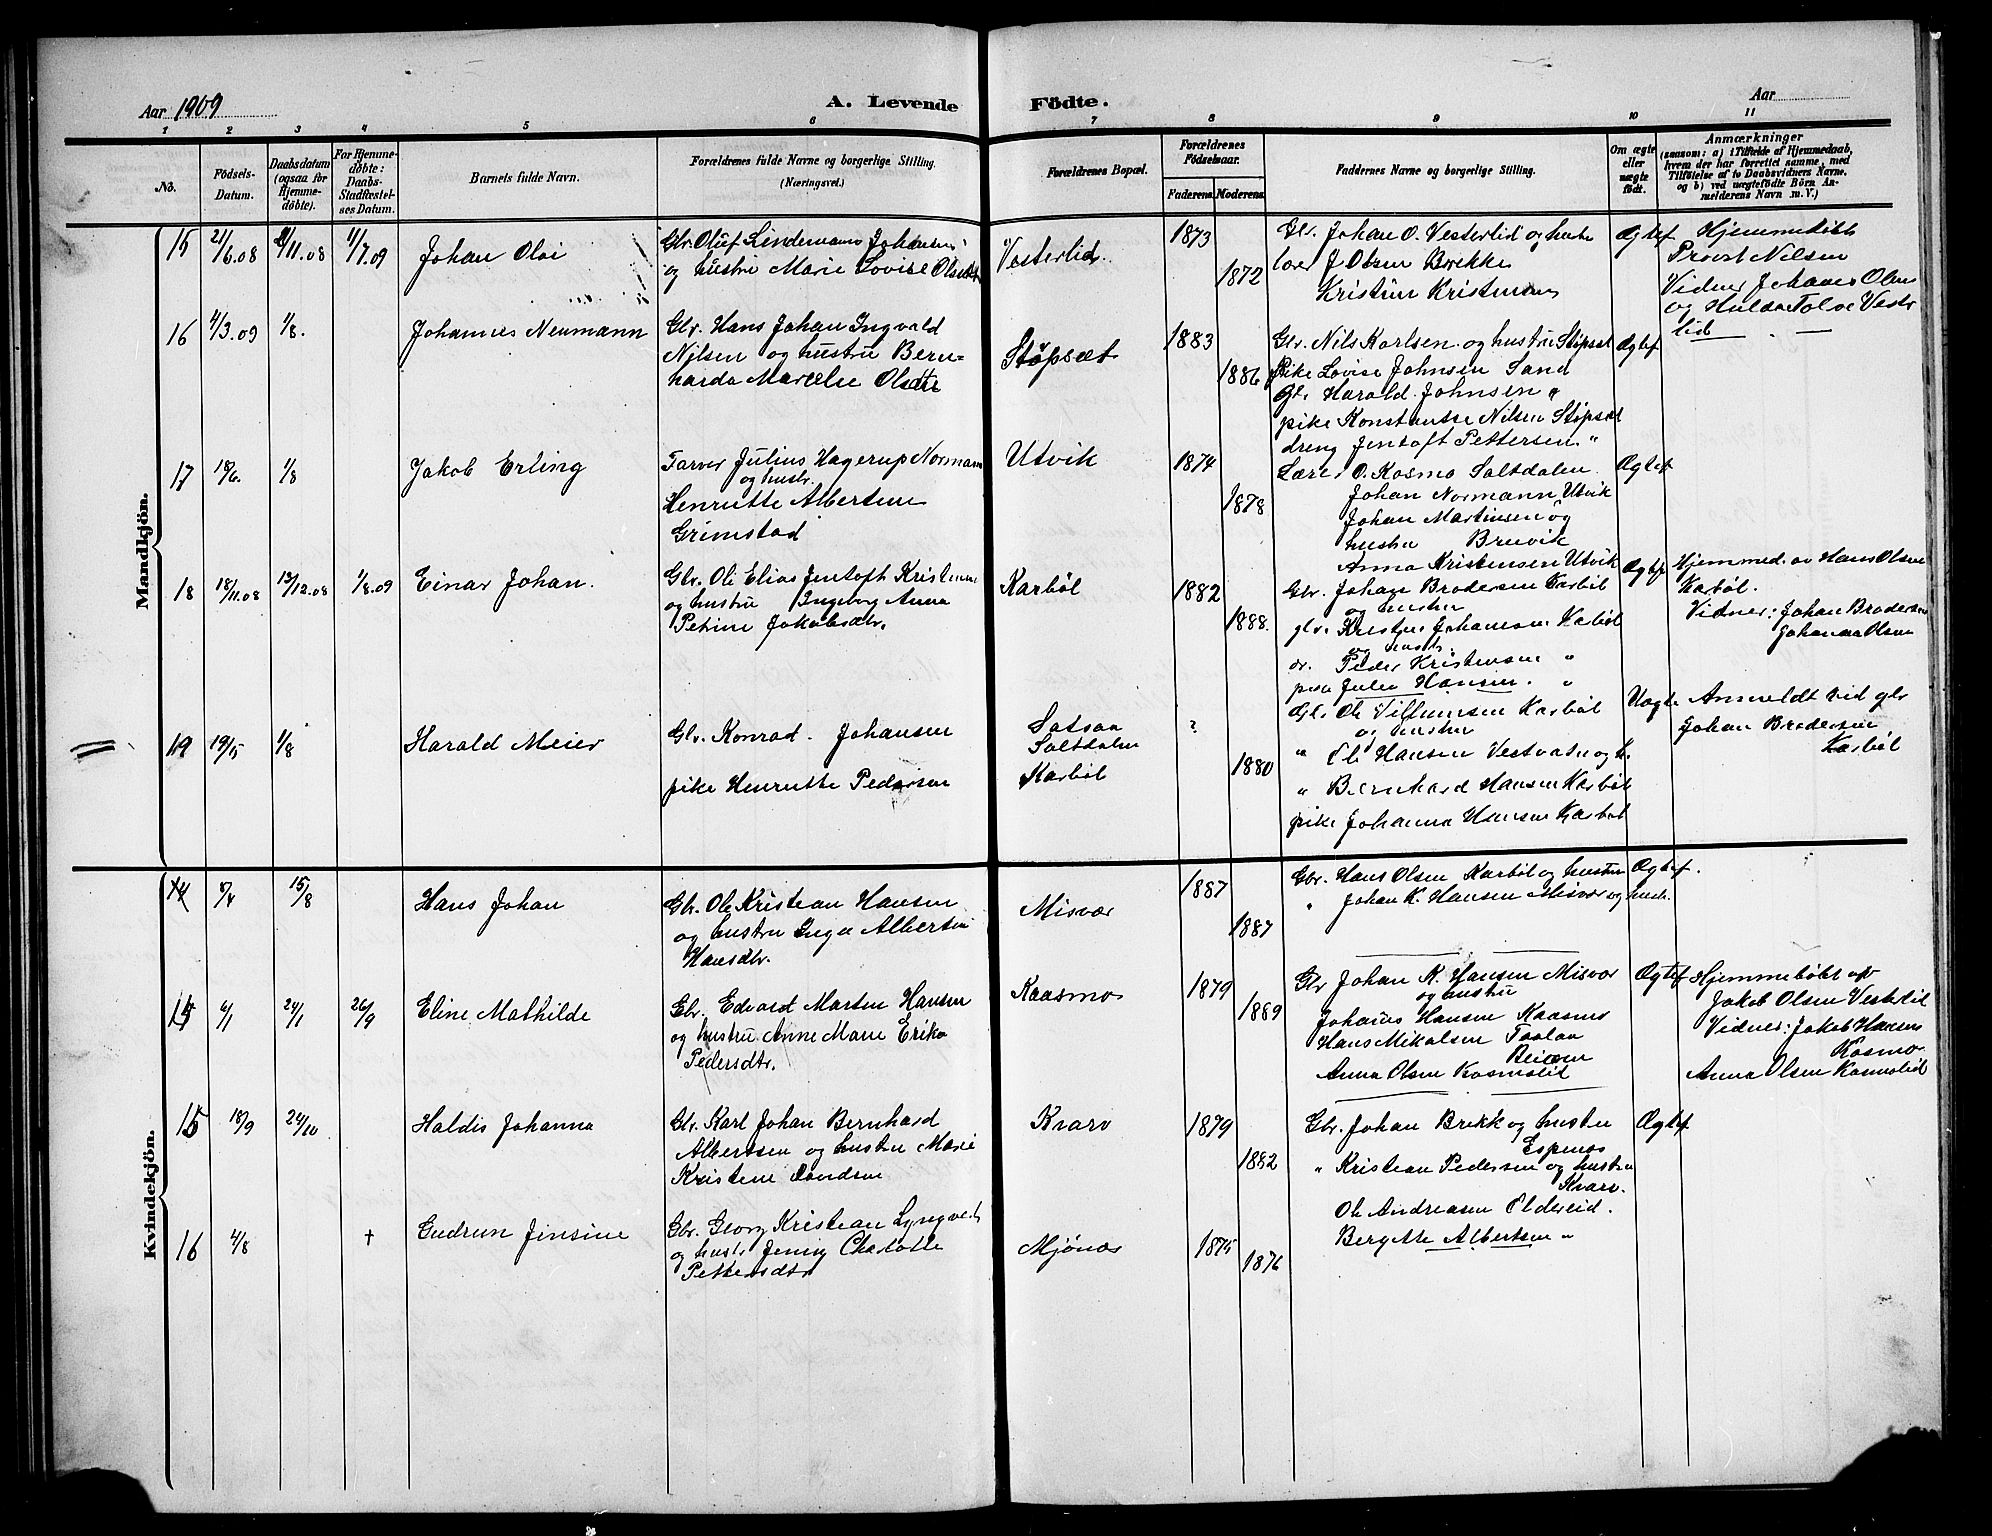 Aar 1909
A. Levende Födte.
Aar
1 2 3 4 5 6 7 8 9 10 11
No.
Födsels-Datum.
Daabsdatum (ogsaa for Hjemme-döbte).
For Hjemme-döbte: Daabs-Stadfæstel-ses Datum.
Barnets fulde Navn.
Forældrenes fulde Navne og borgerlige Stilling. (Næringsvei.)
Forældrenes Bopæl.
Forældrenes Födselsaar.
Faderens. Moderens.
Faddernes Navne og borgerlige Stilling.
Om ægte eller uægte födt.
Anmærkninger
(saasom: a) i Tilfælde af Hjemmedaab, hvem der har forrettet samme, med Tilföielse af to Daabsvidners Navne. og b) ved uægtefödte Börn An-melderens Navn m. V.)
Mandkjön.
15 21/6.08 /11.08 1/7.09 Johan Olai
Gbr. Oluf Lindemann Johansen
og hustru Marie Lovise Olsdtr
Vesterlid. 1873 1872
Gbr. Johan O. Vesterlid og hustr
lærer J Olsen Brekke
Kristine Kristensen
Ægtef
Hjemmedöbt
Provst Nilsen
Vidner Johannes Olsen
og Hulda Tolve Vester
lid
16 4/3.09 1/8. Johannes Neumann
Gbr. Hans Johan Ingvald
Nilsen og hustru Bern-
harda Marcelie Olsdtr
Støpsæt 1883 1886
Gbr. Nils Karlsen og hustru Støpset
Pike Lovise Johnsen Sand
Gbr Harald Johnsen "
pike Konstanse Nilsen Støpset
dreng Jentoft Pettersen "
Ægtef
17 18/6. 1/8 Jakob Erling
Farver Julius Hagerup Normann
og hustr.
Henriette Albertine
Grimstad
Utvik 1874 1878
Lærer O. Kosmo Saltdalen
Johan Normann Utvik
Johan Martinsen og
hustru Breivik
Anna Kristensen Utvik
Ægtef
18 18/11.08 13/12.08 1/8.09 Einar Johan.
Gbr. Ole Elias Jentoft Kristensen
og hustru Ingeborg Anna
Petrine Jakobsdtr.
Karbøl 1882 1888.
Gbr. Johan Brodersen Karbøl
og hustru
gbr. Kristen Johansen Karbøl
og hustr.
dr. Peder Kristensen "
pike Julie Hansen. "
Ægtef
Hjemmed. av Hans Olsen
Karbøl.
Vidner: Johan Brodersen
Johanna Olsen
19 19/5 1/8 Harald Meier
Gbr. Konrad Johansen
pike Henriette Pedersen
Saltdalen
Karbøl
? 1880
Gbr Ole Villumsen Karbøl
og hustru
" Ole Hansen Vestvatn og h.
" Bernhard Hansen Karbøl
pike Johanna Hansen Karbøl
Uægte
Anmeldt ved gbr
Johan Brodersen
Karbøl
Kvindekjön.
14 /4 15/8 Hans Johan
Gbr. Ole Kristian Hansen
og hustru Inga Albertine
Hansdtr.
Misvær 1887 1887
Gbr. Hans Olsen Karbøl og hustru
" Johan K. Hansen Misvær og hustr.
Ægtef.
15 6/1 24/1 26/9 Eline Mathilde
Gbr. Edvard Martin Hansen
og hustru Anne Marie Erika
Pedersdtr.
Kaasmo 1879 1889
Gbr Johan K. Hansen Misvær
og hustru
Johans Hansen Kaasmo
Hans Mikalsen
Beiarn
Anna Olsen Kosmolid
Ægtef
Hjemmedöbt av
Jakob Olsen Vesterlid
Vidner: Jakob Hansen
Kosmo
Anna Olsen Kosmolid
15 18/9 24/10 Haldis Johanna
Gbr. Karl Johan Bernhard
Albertsen og hustru Marie
Kristine Davidsen
Kvarv 1879 1882
Gbr. Johan Brekk og hustru
Espenes
" Kristian Pedersen og hustru
Kvarv.
Ole Andreasen Oldereid.
Bergitte Albertsen "
Ægtef
16 4/8 † Gudrun Jensine
Gbr. Georg Kristian Lyngvær
og hustr Jenny Charlotte
Pettersdtr
Mjønæs 1875 1876